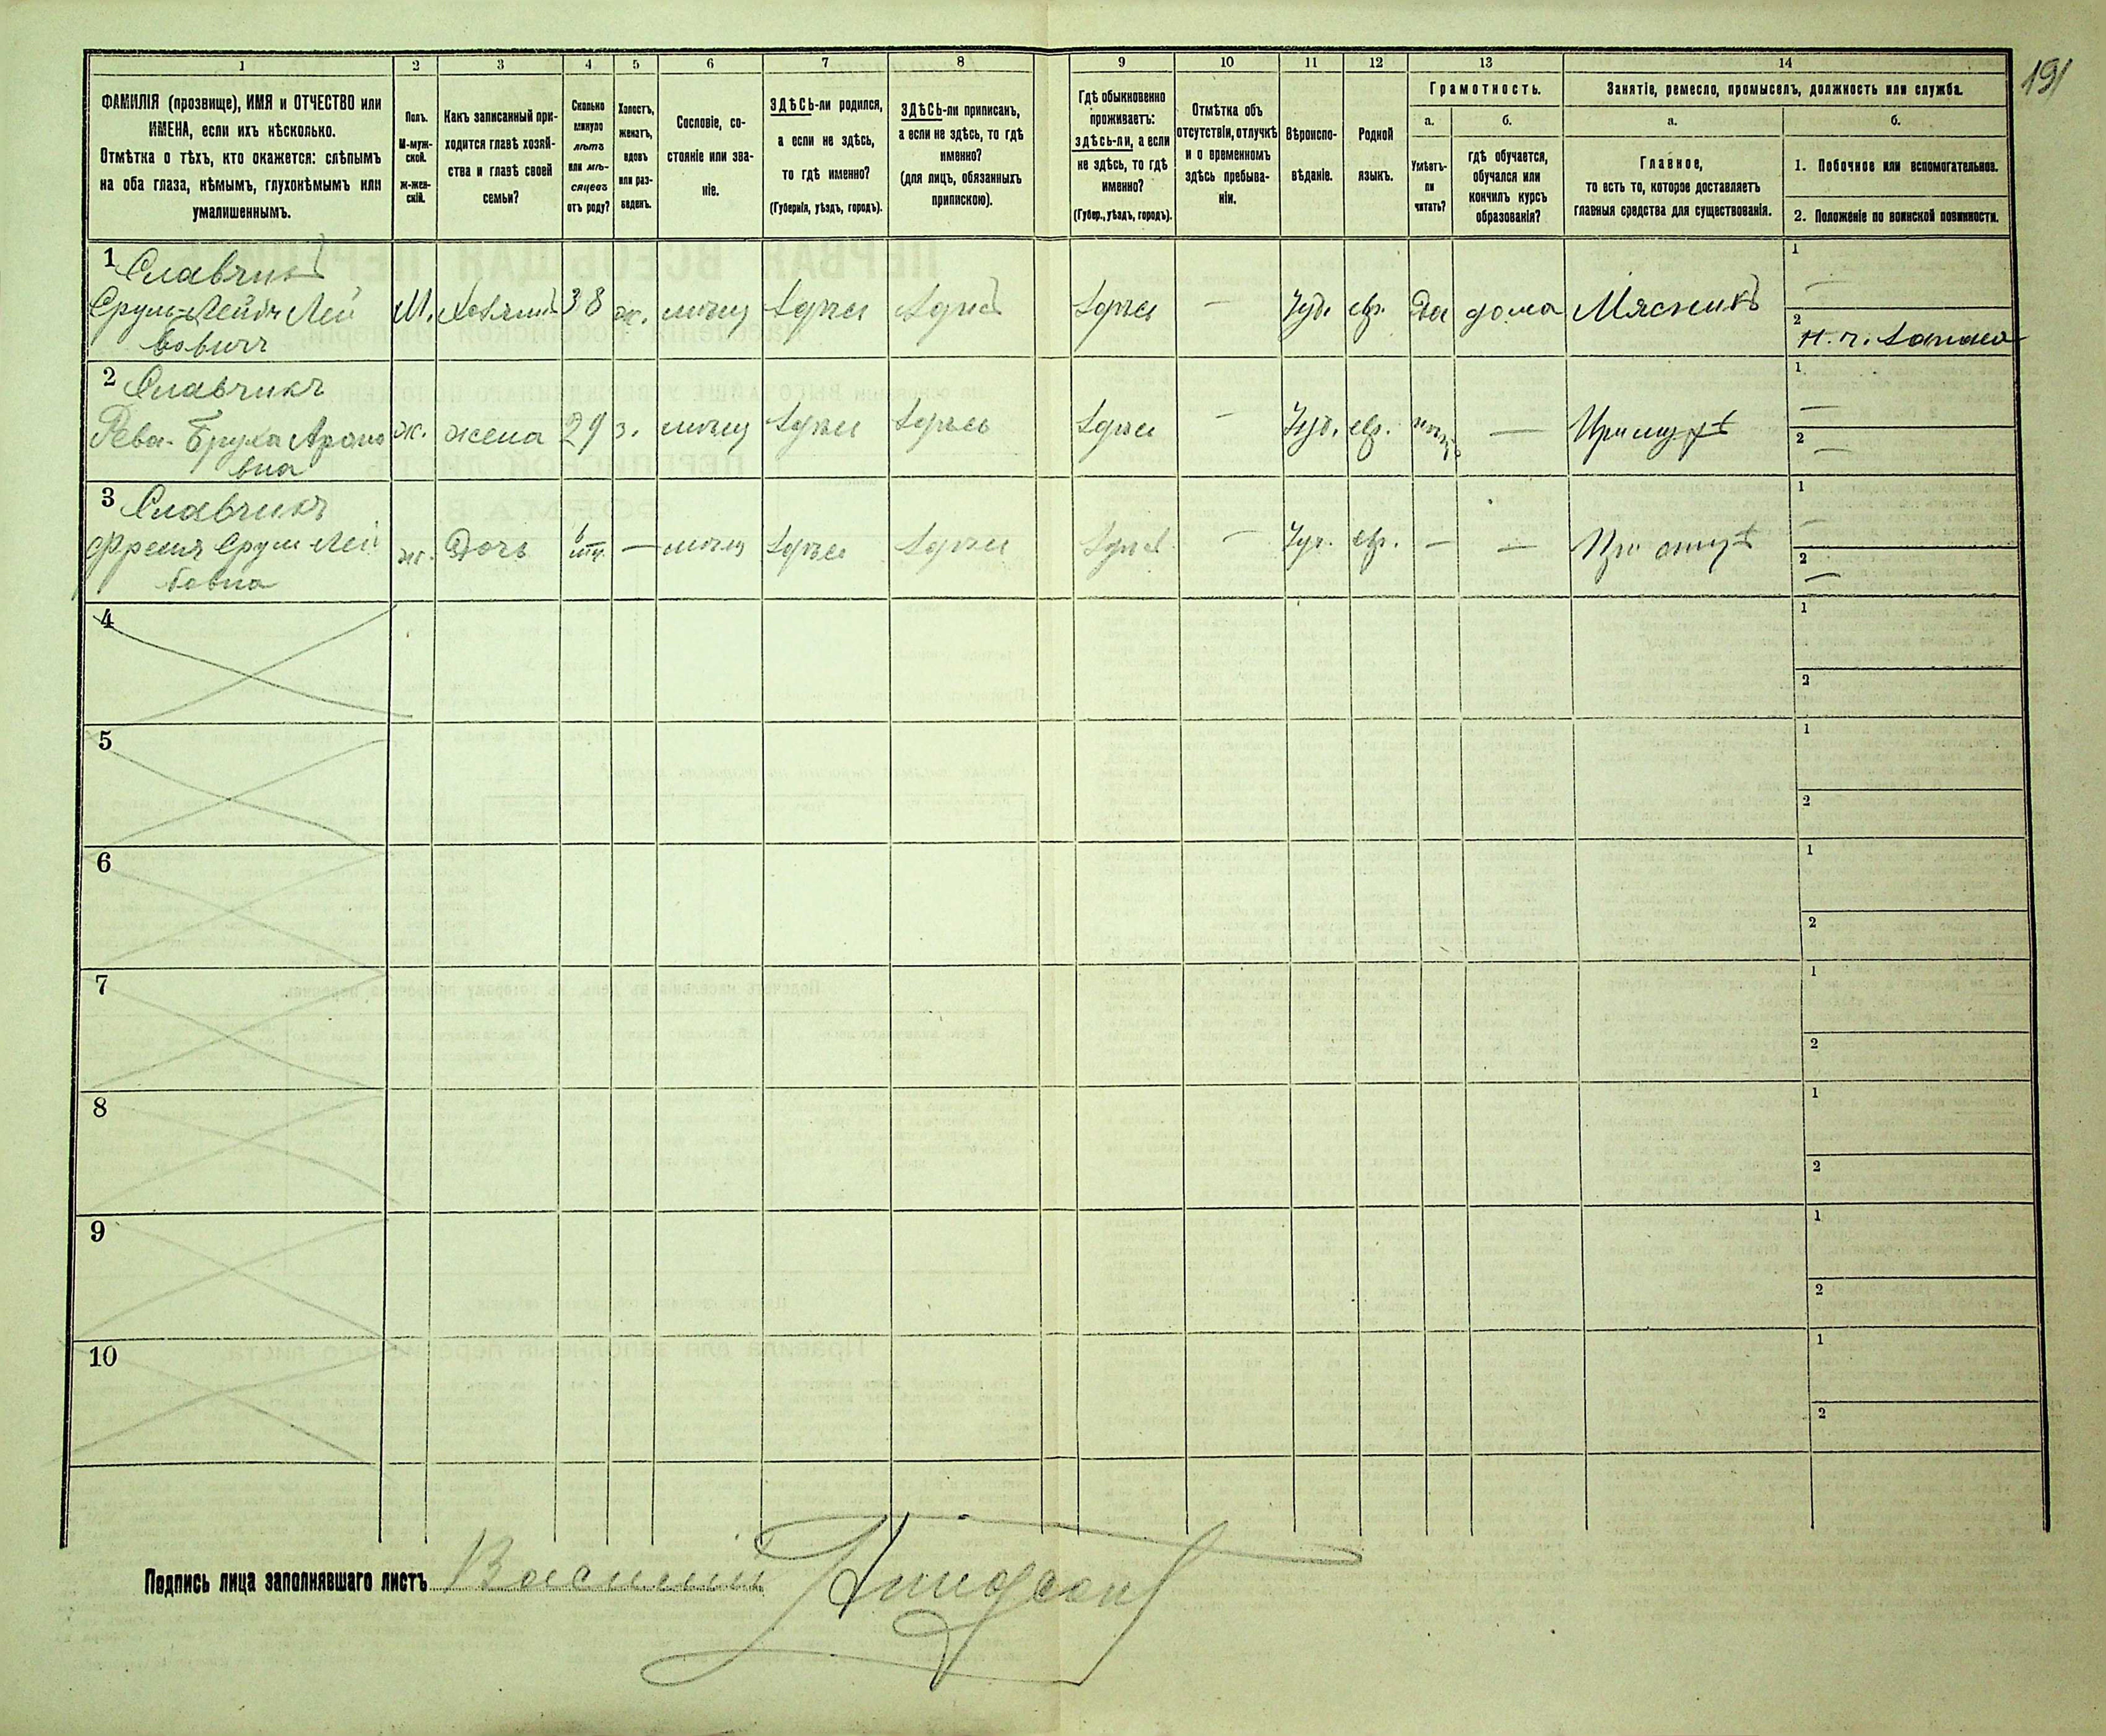 191
1 2 3 4 5 6 7 8 9 10 11 12 13 14
ФАМИЛІЯ (прозвище), ИМЯ и ОТЧЕСТВО или
ИМЕНА, если ихъ нѣсколько.
Отмѣтка о тѣхъ, кто окажется: слѣпымъ
на оба глаза, нѣмымъ, глухонѣмымъ или
умалишеннымъ.
Полъ.
М-муж-
ской.
Ж-жен-
скій.
Какъ записанный при-
ходится главѣ хозяй-
ства и главѣ своей
семьи?
Сколько
минуло
лѣтъ
или мѣ-
сяцевъ
отъ роду?
Холостъ,
женатъ,
вдовъ
или раз-
веденъ.
Сословіе, со-
стояніе или зва-
ніе.
ЗДѢСЬ-ли родился,
а если не здѣсь,
то гдѣ именно?
(Губернія, уѣздъ, городъ).
ЗДѢСЬ-ли приписанъ,
а если не здѣсь, то гдѣ
именно?
(для лицъ, обязанныхъ
припискою).
Гдѣ обыкновенно
проживаетъ:
здѣсь-ли, а если
не здѣсь, то гдѣ
именно?
(Губер., уѣздъ, городъ).
Отмѣтка объ
отсутствіи, отлучкѣ
и о временномъ
здѣсь пребыва-
ніи.
Вѣроиспо-
вѣданіе.
Родной
языкъ.
Грамотность.
а.
Умѣетъ-
ли
читать?
б.
гдѣ обучается,
обучался или
кончилъ курсъ
образованія?
Занятіе, ремесло, промыселъ, должность или служба.
а.
Главное,
то есть то, которое доставляетъ
главныя средства для существованія.
б.
1. Побочное или вспомогательное.
2. Положеніе по воинской повинности.
1 Славчикъ
Сруль-Лейбъ Лей
бовичъ
М. Хозяинъ 38 ж. мѣщ здѣсь здѣсь здѣсь — Іуд. евр. Да дома Мясникъ
1 —
2
2 Славчикъ
Рева-Бруха Ароно
вна
ж. жена 29 з. мѣщ здѣсь здѣсь здѣсь — Іуд. евр. — При мужѣ
1 —
2 —
3 Славчикъ
Срул Лей
бовна
ж. Дочь — мѣщ здѣсь здѣсь здѣсь — Іуд. евр. — — При отцѣ
1 —
2 —
4
1
2
5
1
2
6
1
2
7
1
2
8
1
2
9
1
2
10
1
2
Подпись лица заполнявшаго листъ Василій